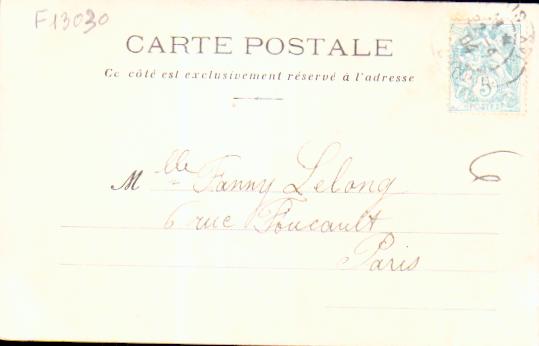 F13030
CARTE POSTALE
Ce côté est exclusivement réservé à l'adresse
5
POSTES
6
Mlle Fanny Lelong
6 rue Foucault
Paris